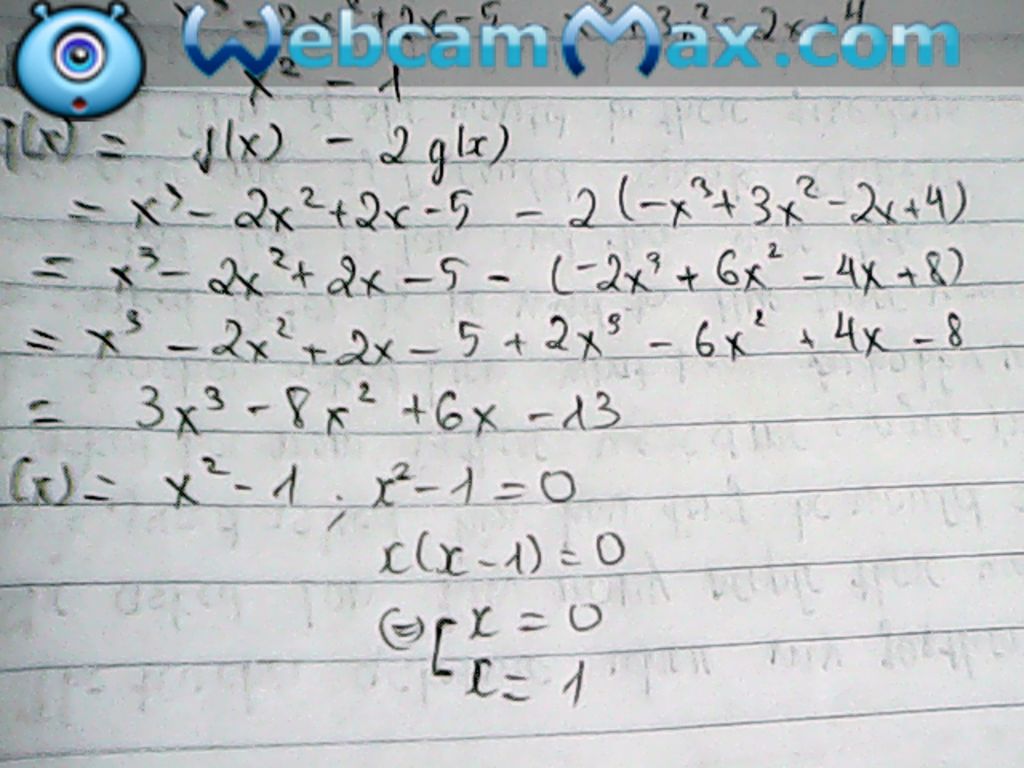 WebcamMax.com
x² - 1
(x) = f(x) - 2g(x)
= x³ - 2x² + 2x - 5 - 2(-x³ + 3x² - 2x + 4)
= x³ - 2x² + 2x - 5 - (-2x³ + 6x² - 4x + 8)
= x³ - 2x² + 2x - 5 + 2x³ - 6x² + 4x - 8
= 3x³ - 8x² + 6x - 13
(x) = x² - 1 ; x² - 1 = 0
x(x - 1) = 0
(=) [ x = 0
x = 1